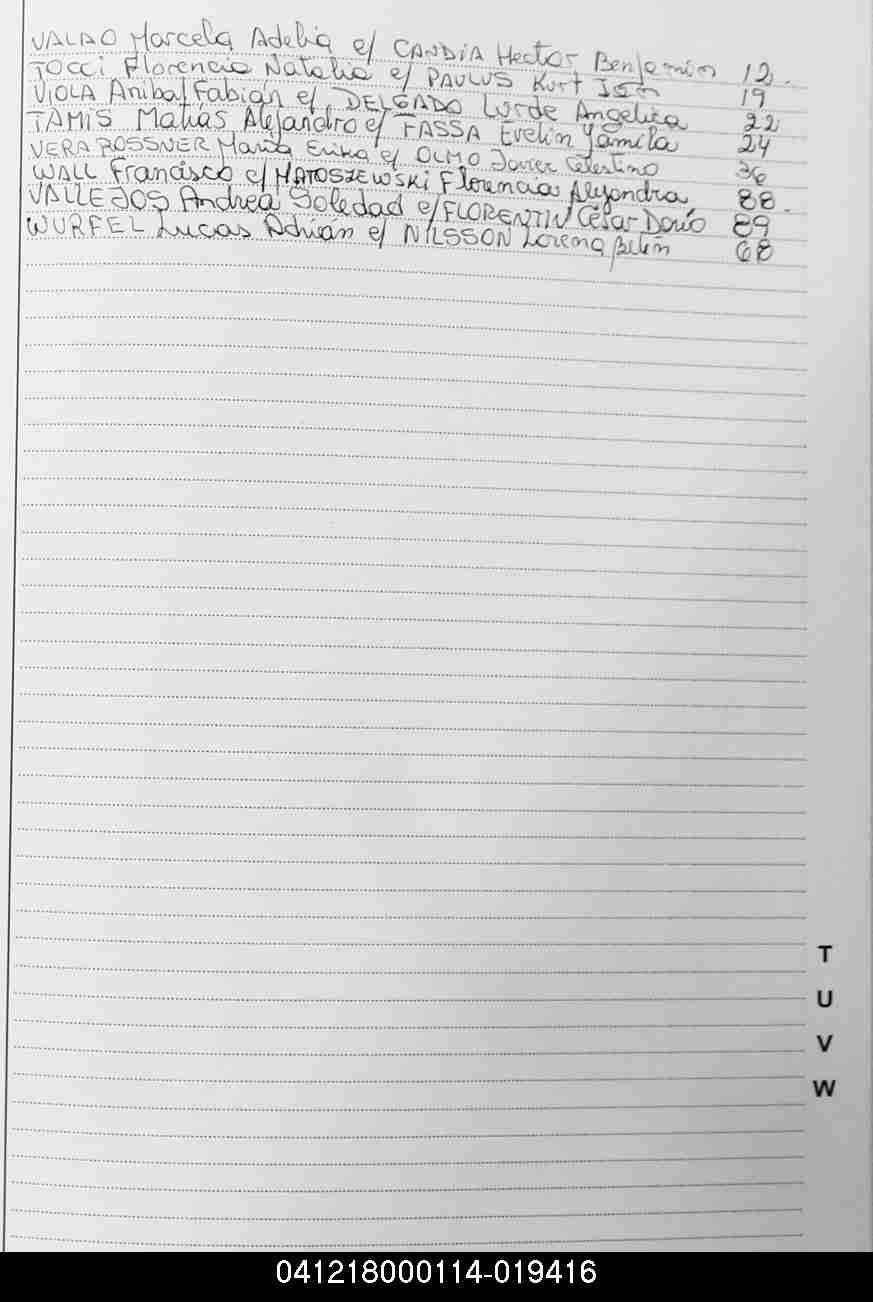 VALDO Marcela Adelia c/ CANDIA Hector Benjamin 12
TOCCI Florencia Natalia c/ PAULUS Kurt 19
VIOLA Anibal Fabián c/ DELGADO Lurde Angelica 22
TAMIS Matías Alejandro c/ FASSA Evelin Yamila 24
VERA ROSSNER María Erika c/ OLMO Javier Celestino 36
WALL Francisco c/ MATOSZEWSKI Florencia Alejandra 88
VALLEJOS Andrea Soledad c/ FLORENTIN César Darío 89
WURFEL Lucas Adrián c/ NILSSON Lorena Belén 68
T
U
V
W
041218000114-019416